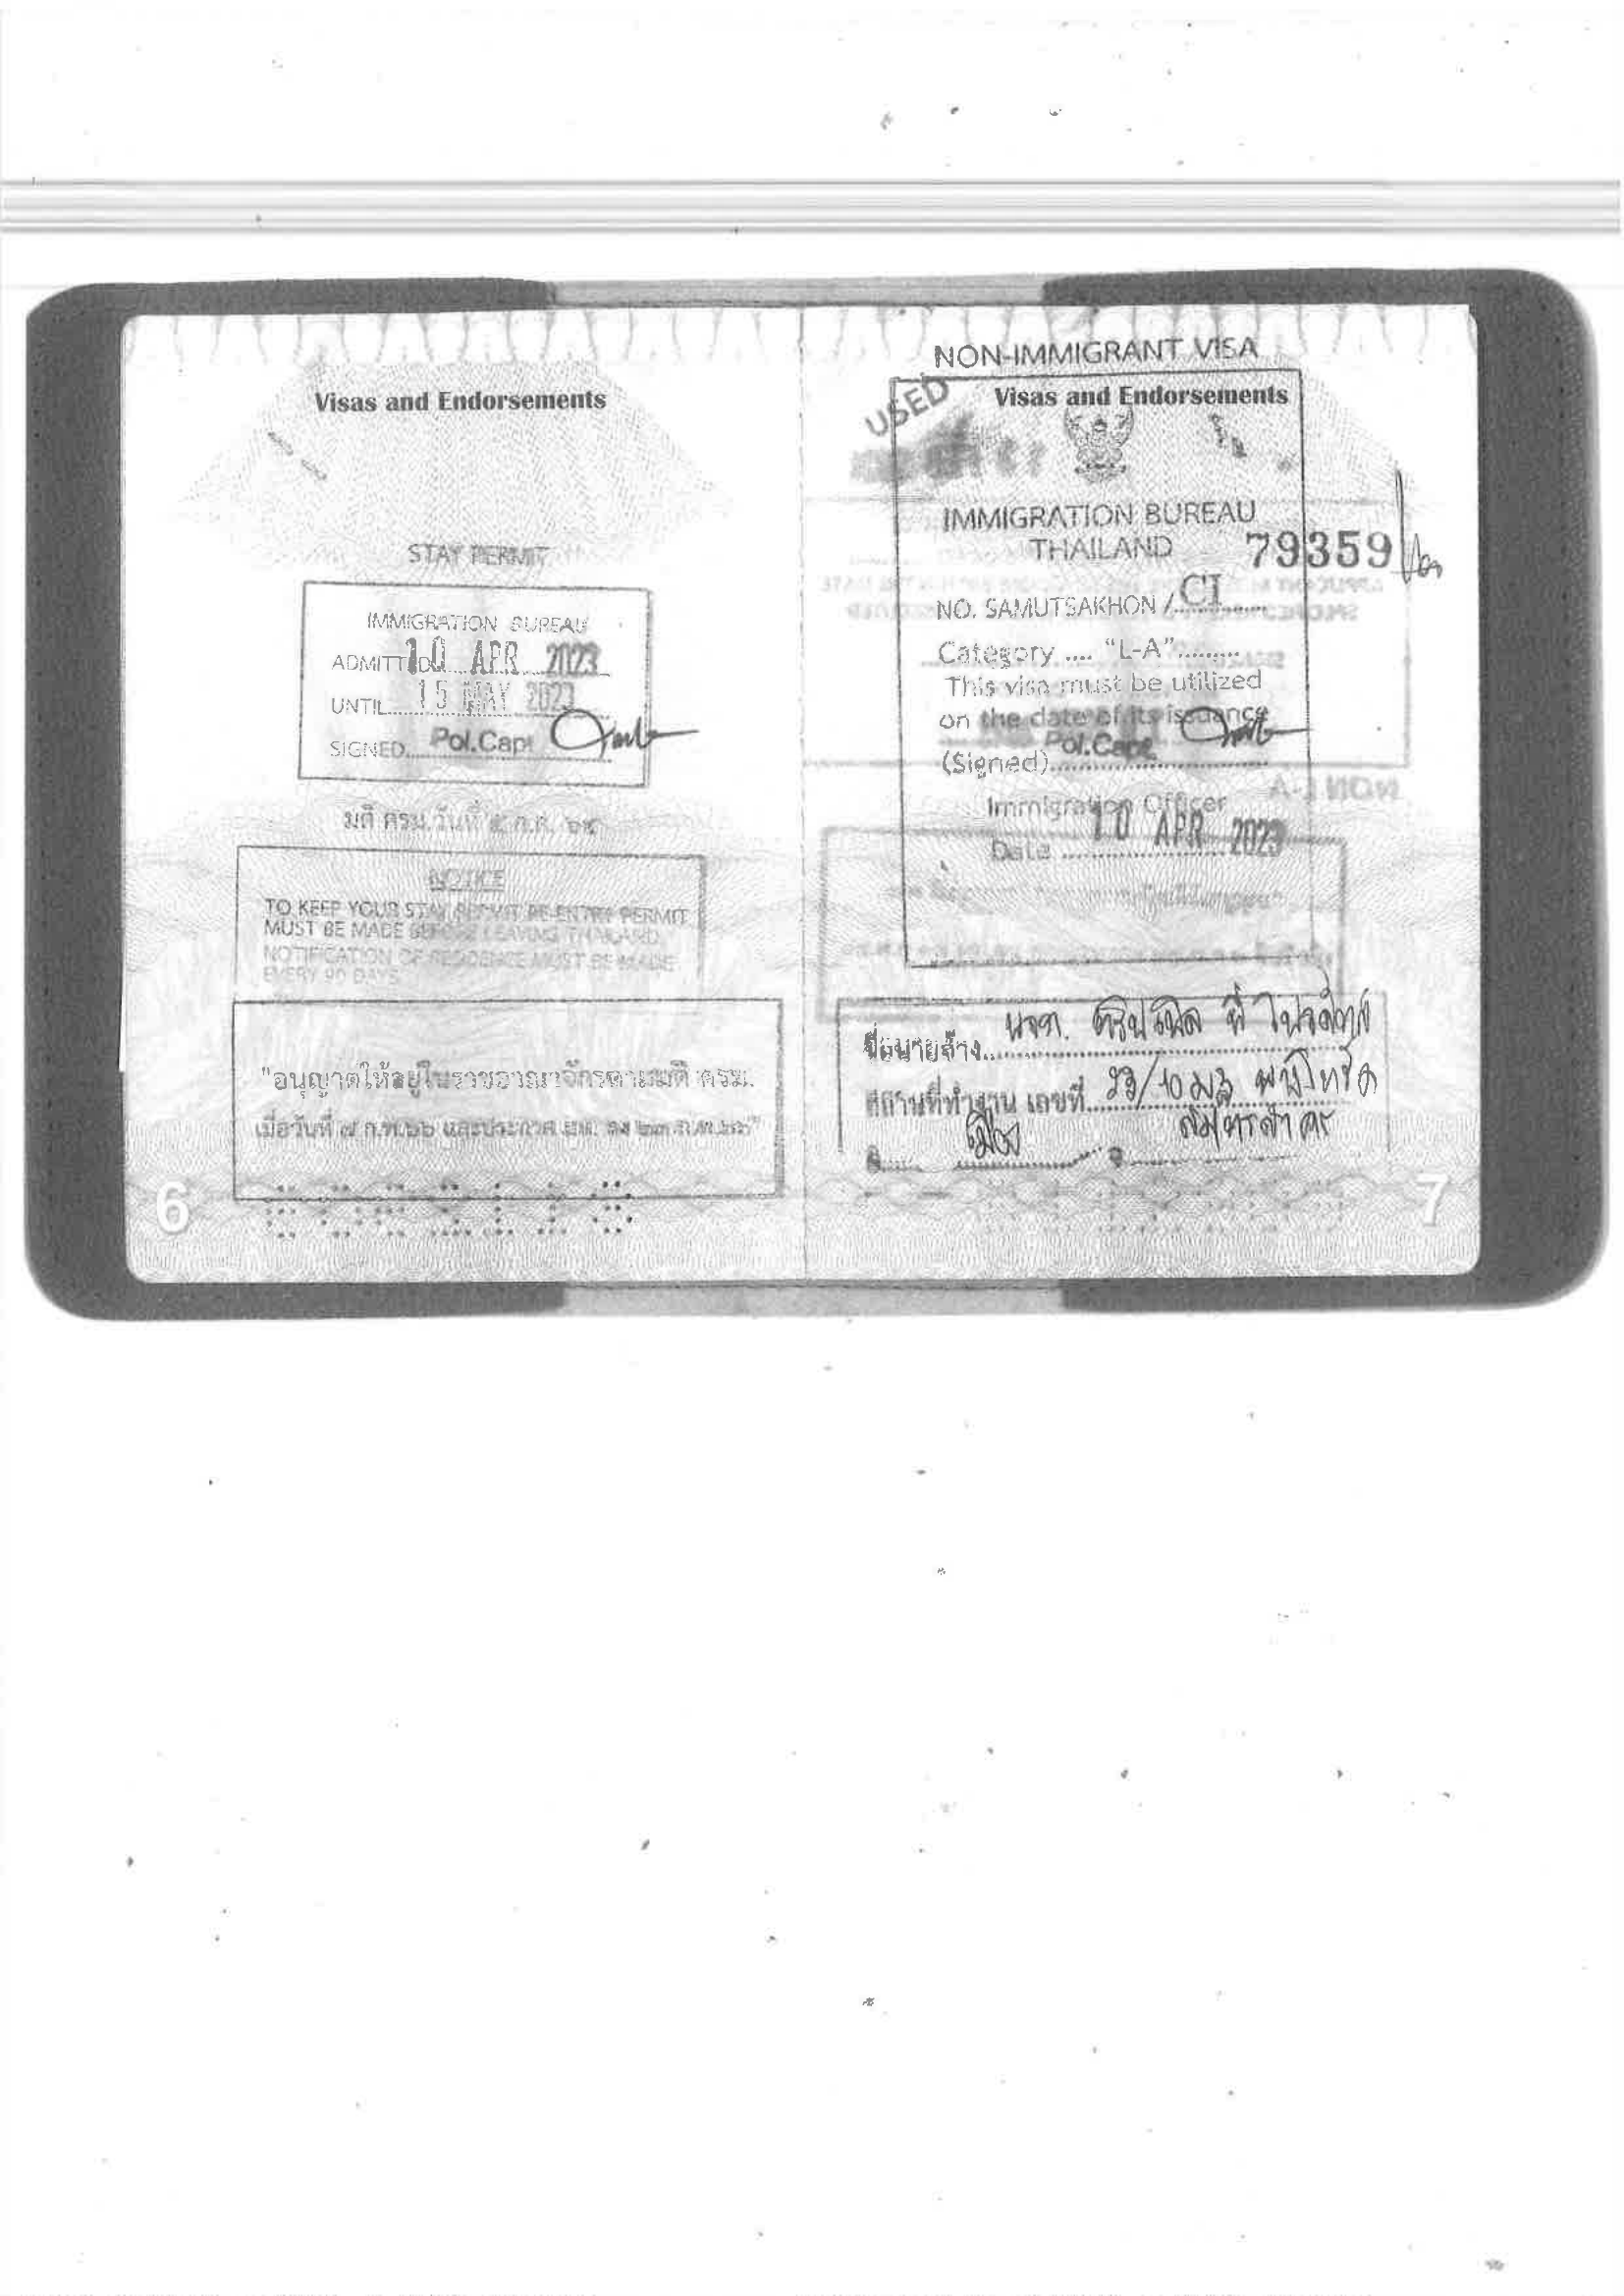 Visas and Endorsements
STAY PERMIT
IMMIGRATION BUREAU
ADMITTED 10 APR 2023
UNTIL 15 MAY 2023
SIGNED Pol.Capt
มติ ครม. วันที่ ๕ ก.ค. ๖๕
NOTICE
TO KEEP YOUR STAY PERMIT RE-ENTRY PERMIT
MUST BE MADE BEFORE LEAVING THAILAND
NOTIFICATION OF RESIDENCE MUST BE MADE
EVERY 90 DAYS
"อนุญาตให้อยู่ในราชอาณาจักรตามมติ ครม.
เมื่อวันที่ ๗ ก.พ.๖๖ และประกาศ มท. ลง ๒๓ ก.พ.๖๖"
6
NON-IMMIGRANT VISA
USED
Visas and Endorsements
IMMIGRATION BUREAU
THAILAND
79359
NO. SAMUTSAKHON / CI
Category .... "L-A".........
This visa must be utilized
on the date of its issuance
(Signed) Pol.Capt
Immigration Officer
Date 10 APR 2023
NON L-A
ชื่อนายจ้าง
สถานที่ทำงาน เลขที่ 23/10 ม.3
เมือง สมุทรสาคร
7